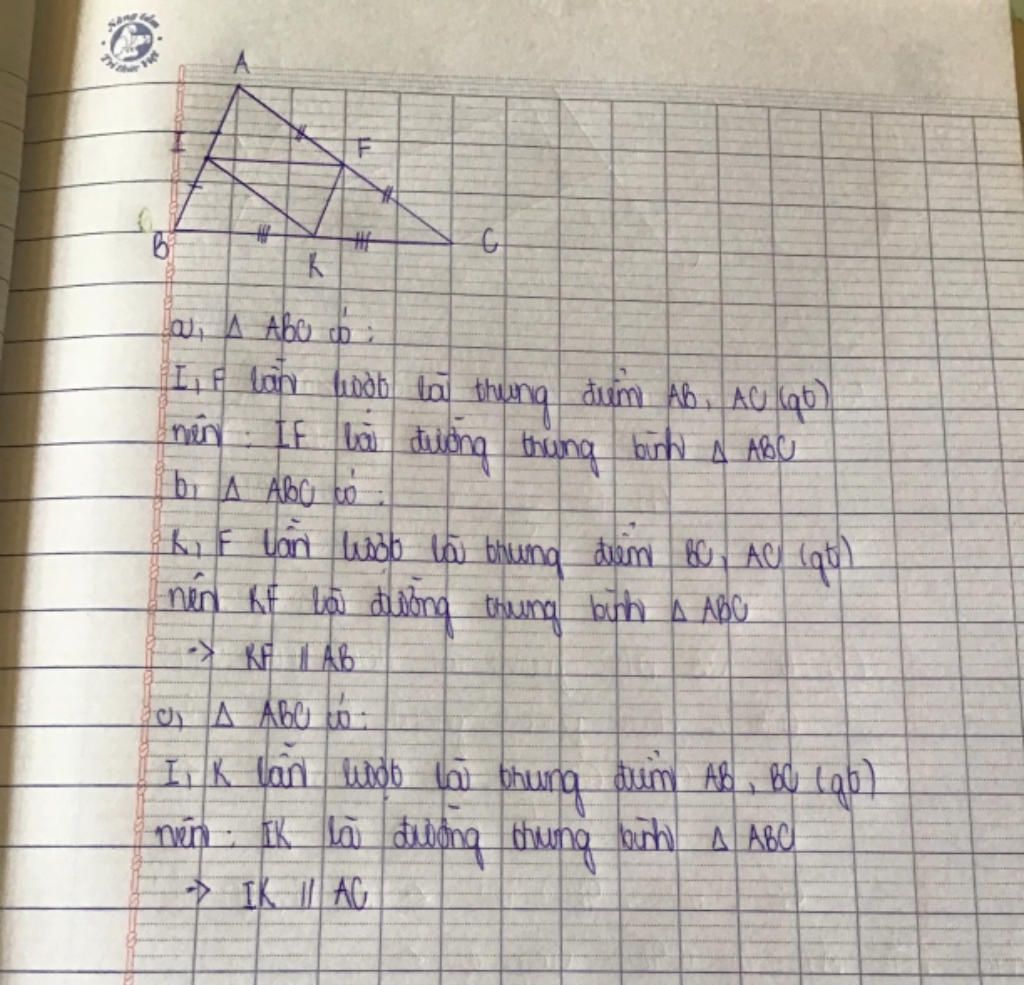 Sáng tâm
Trí thức Việt
A
I
F
B
K
C
a, Δ ABC có :
I, F lần lượt là trung điểm AB, AC (gt)
nên : IF là đường trung bình Δ ABC
b, Δ ABC có :
K, F lần lượt là trung điểm BC, AC (gt)
nên KF là đường trung bình Δ ABC
-> KF // AB
c, Δ ABC có :
I, K lần lượt là trung điểm AB, BC (gt)
nên : IK là đường trung bình Δ ABC
-> IK // AC